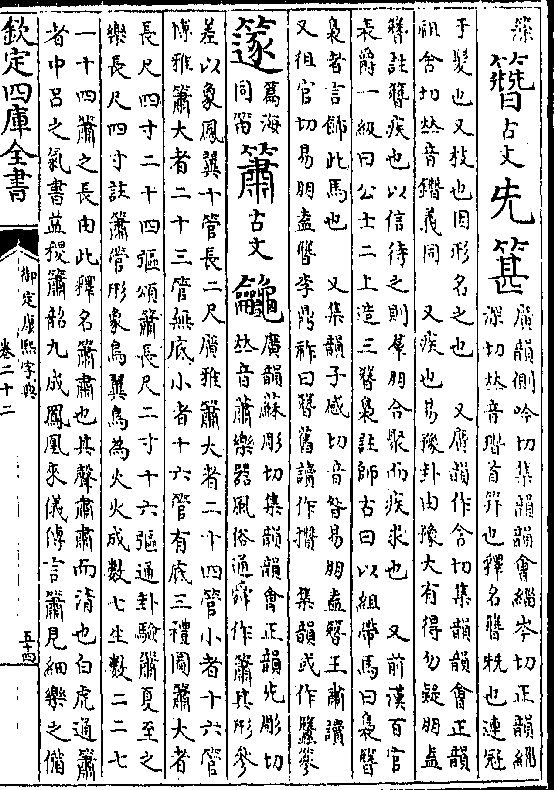 簪 古文 兂 篸 廣韻側吟切集韻韻會緇岑切正韻緇
深切𠀤音璔首笄也釋名簪兓也連冠
于髮也又枝也因形名之也 又廣韻作含切集韻韻會正韻
祖含切𠀤音鐕義同 又疾也易豫卦由豫大有得勿疑朋盍
簪註簪疾也以信待之則羣朋合聚而疾來也 又前漢百官
表爵一級曰公士二上造三簪裊註師古曰以組帶馬曰裊簪
裊者言飾此馬也 又集韻子感切音昝易朋盍簪王肅讀
又徂官切易朋盍簪李鼎祚曰簪舊讀作攢 集韻或作
篴 篇海
同笛
簫 古文 廣韻蘇彫切集韻韻會正韻先彫切
𠀤音蕭樂器風俗通舜作簫其形參
差以象鳳翼十管長二尺廣雅簫大者二十四管小者十六管
博雅簫大者二十三管無底小者十六管有底三禮圖簫大者
長尺四寸二十四彄頌簫長尺二寸十六彄通卦驗簫夏至之
樂長尺四寸註簫管形象鳥翼鳥為火火成數七生數二二七
一十四簫之長由此釋名簫肅也其聲肅肅而清也白虎通簫
者中呂之氣書益稷簫韶九成鳳凰來儀傳言簫見細樂之備
欽定四庫全書
御定康熙字典
卷二十二
五十四